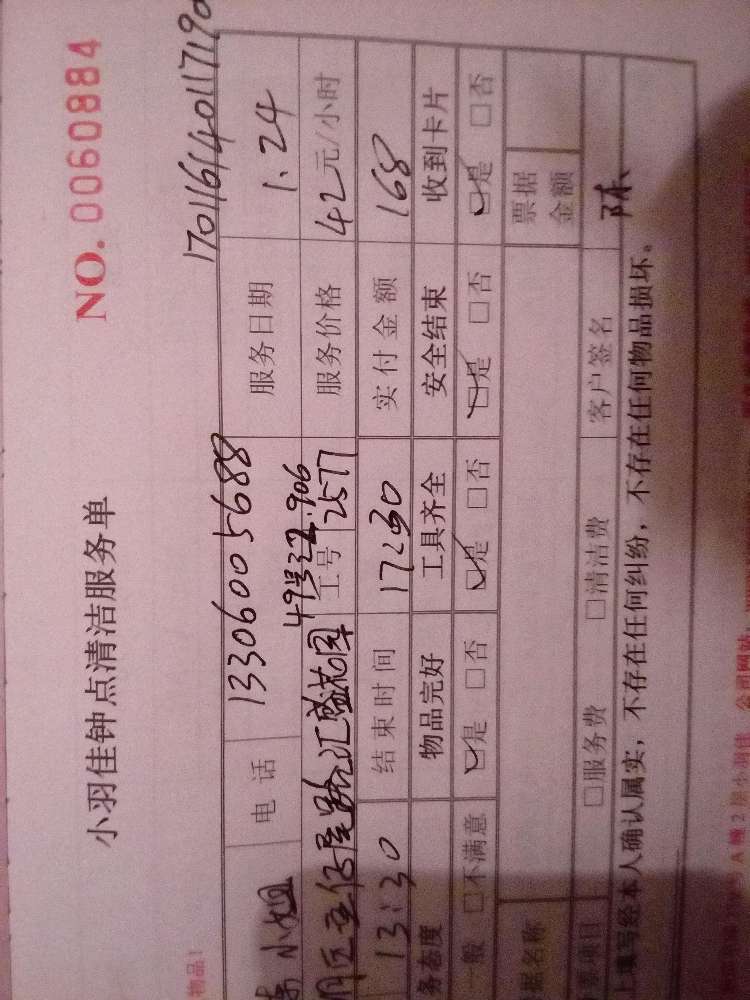 小羽佳钟点清洁服务单
NO. 0060884
物品！
17011614011719
小姐 电话 13306005688 服务日期 1.24
仔尾路汇盛花园 49号 906 工号 2577 服务价格 42元/小时
13:30 结束时间 17:30 实付金额 168
务态度 物品完好 工具齐全 安全结束 收到卡片
般 □不满意 ☑是 □否 ☑是 □否 ☑是 □否 ☑是 □否
据名称 票据金额
项目 □服务费 □清洁费 客户签名 陈
上填写经本人确认属实，不存在任何纠纷，不存在任何物品损坏。